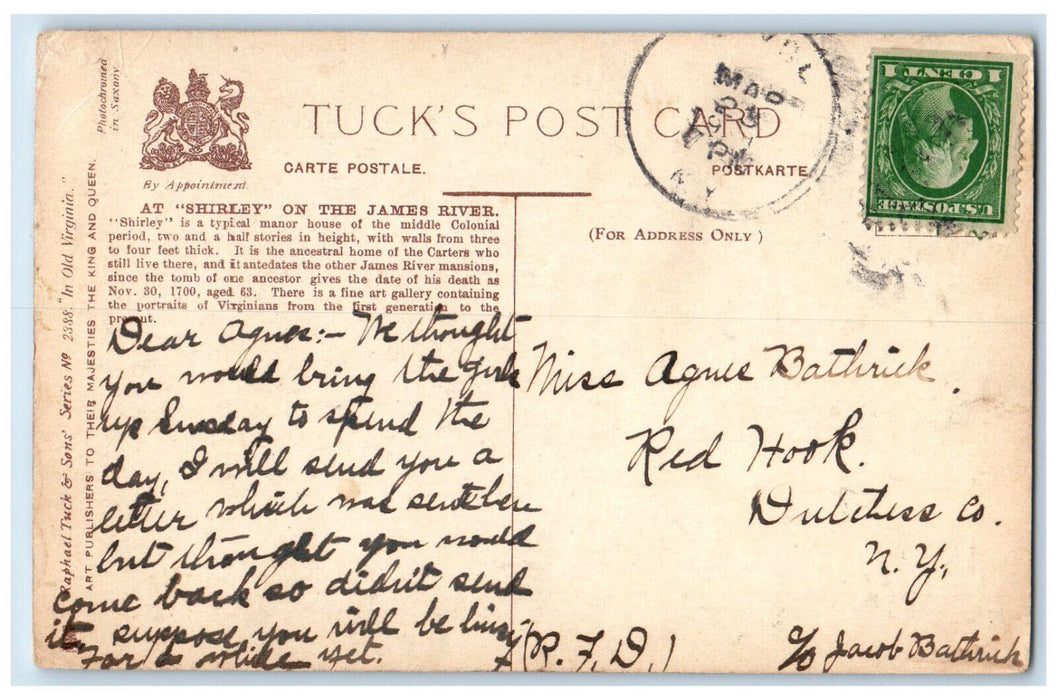 TUCK'S POST CARD
CARTE POSTALE.
POSTKARTE
By Appointment.
Photochromed
in Saxony
Raphael Tuck & Sons' Series Nº 2388. "In Old Virginia."
ART PUBLISHERS TO THEIR MAJESTIES THE KING AND QUEEN.
AT "SHIRLEY" ON THE JAMES RIVER.
"Shirley" is a typical manor house of the middle Colonial
period, two and a half stories in height, with walls from three
to four feet thick. It is the ancestral home of the Carters who
still live there, and it antedates the other James River mansions,
since the tomb of one ancestor gives the date of his death as
Nov. 30, 1700, aged 63. There is a fine art gallery containing
the portraits of Virginians from the first generation to the
present.
Dear Agnes:- We thought
you would bring the girls
up Sunday to spend the
day, I will send you a
letter which was sent here
but thought you would
come back so didn't send
it, suppose you will be busy
for a while yet.
(FOR ADDRESS ONLY)
Miss Agnes Bathrick.
Red Hook.
Dutchess Co.
N.Y.,
(R.F.D.)
c/o Jacob Bathrick
MAR
N.Y.
U.S. POSTAGE
1 CENT 1